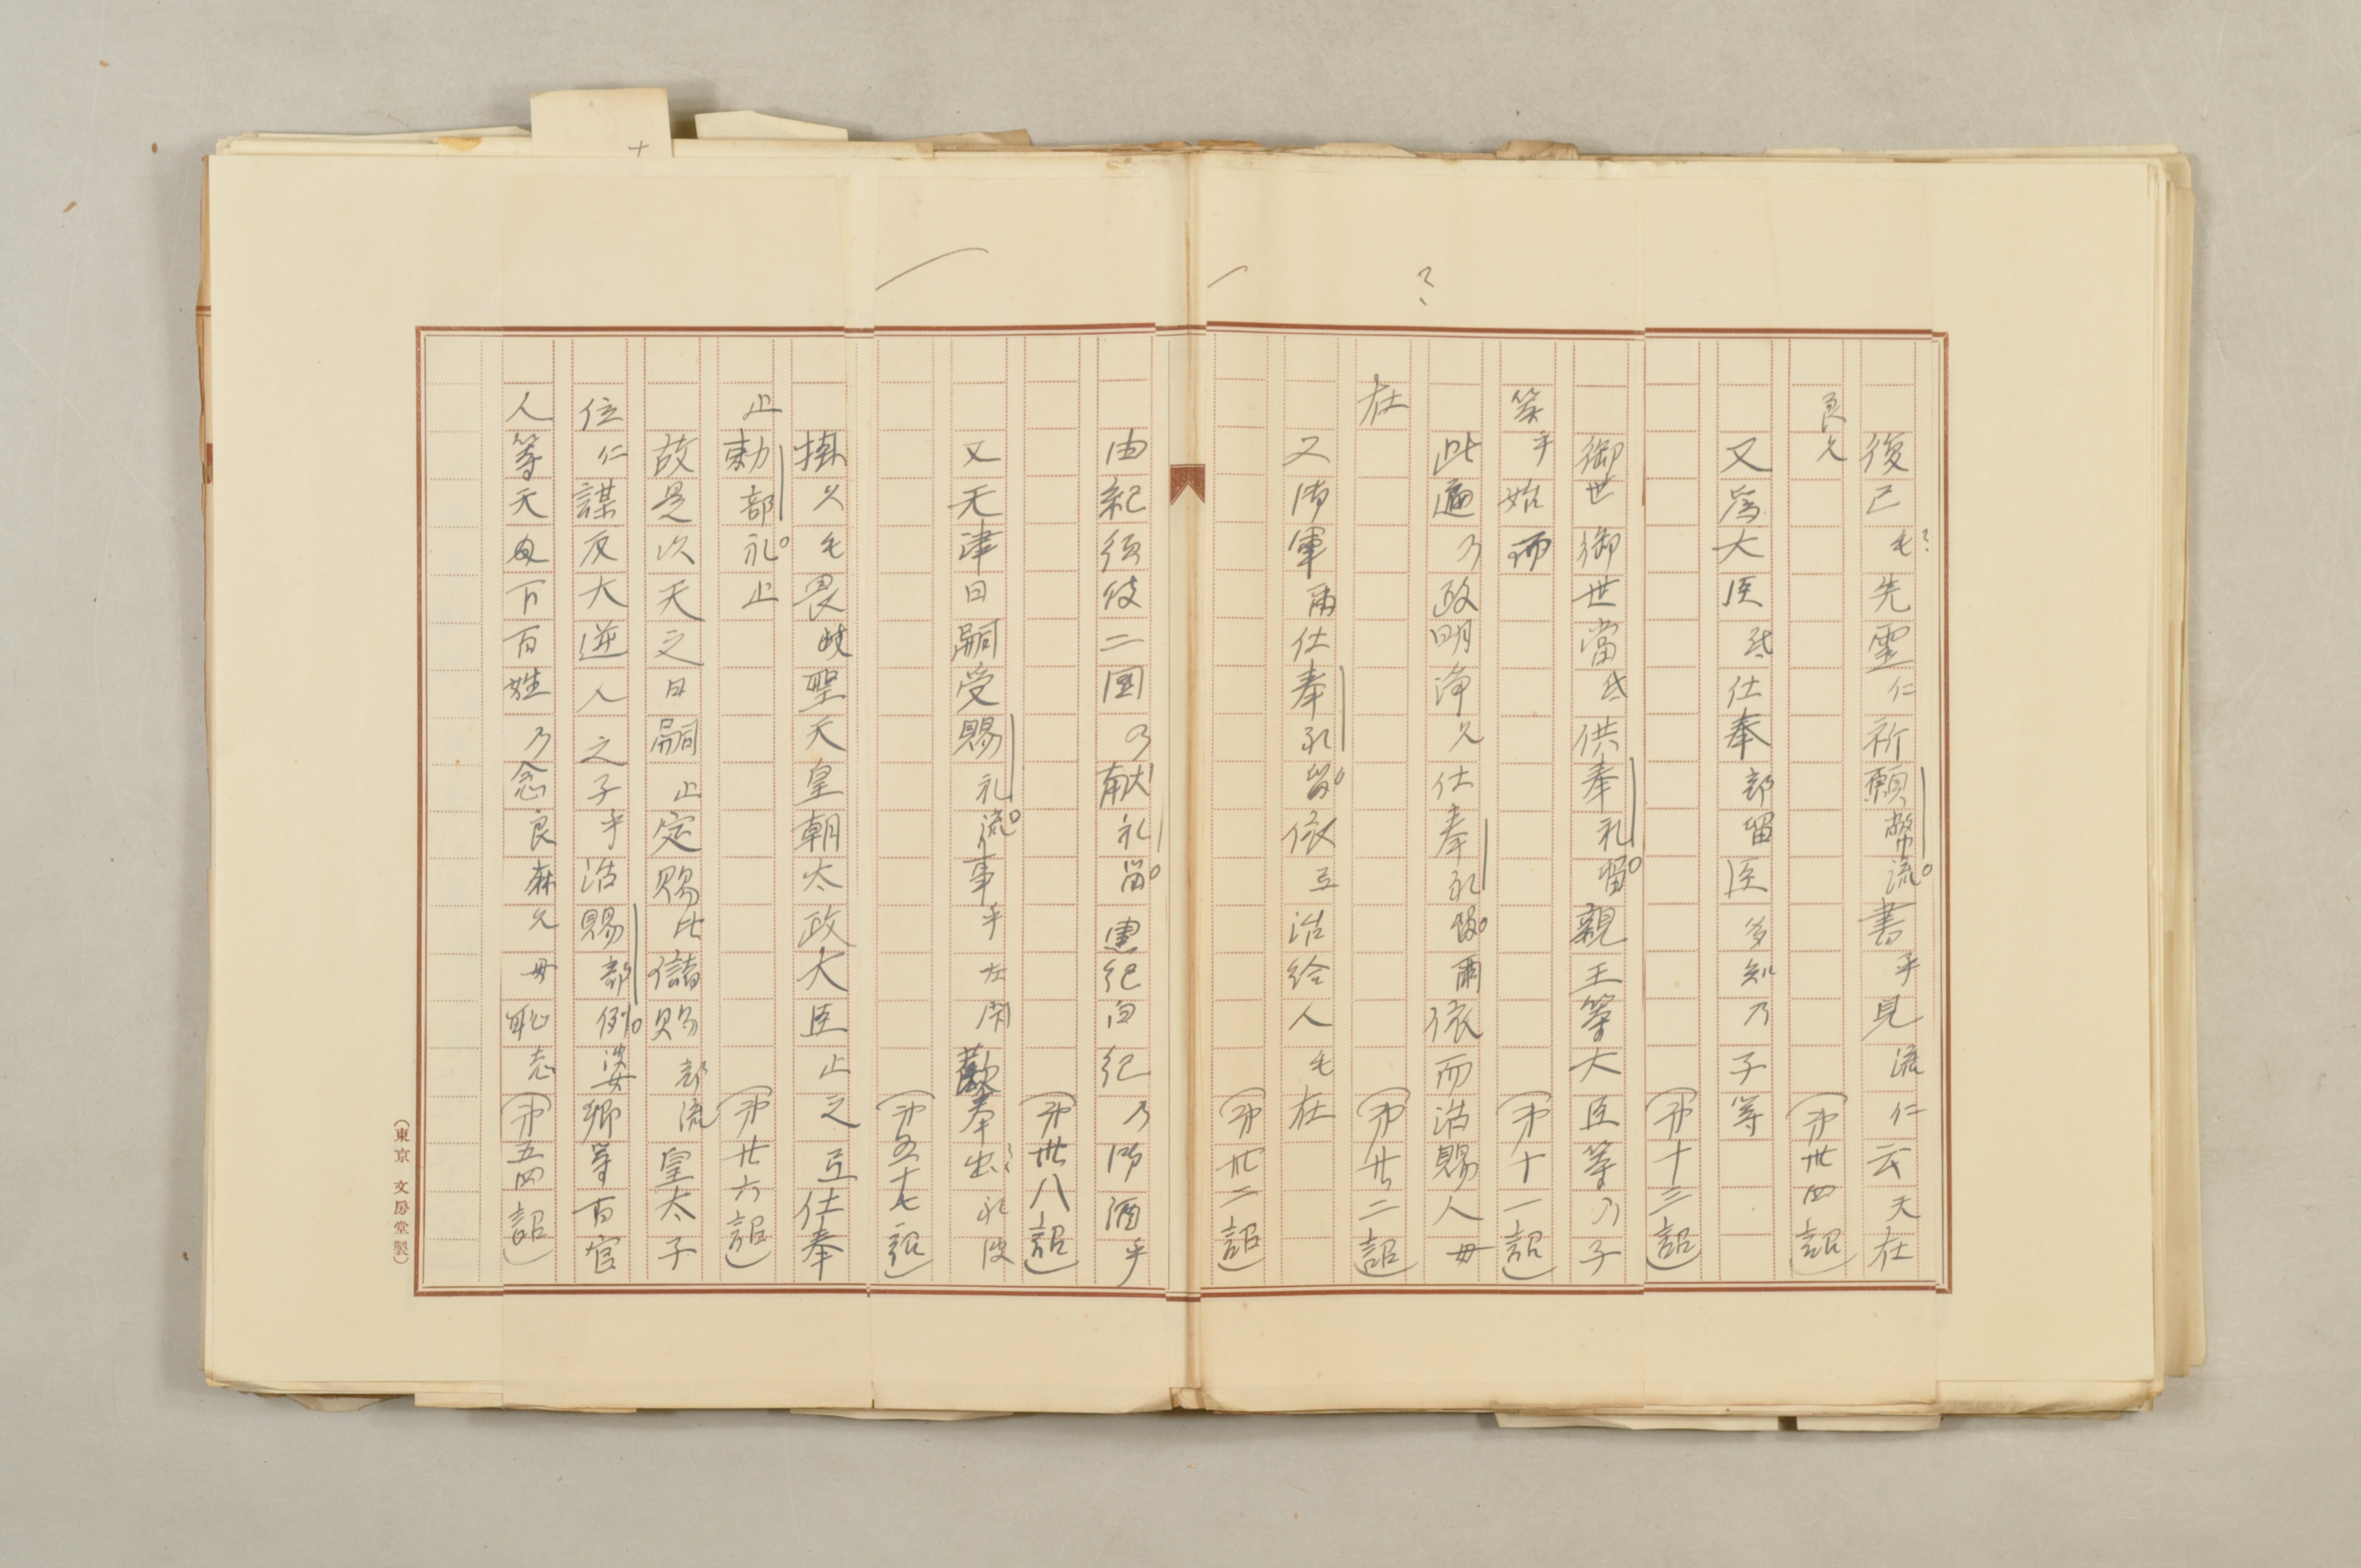 復己毛先霊仁祈願幣流書乎見流仁云天在
良久
(第卅四詔)
又為大臣弖仕奉部留臣多知乃子等
(第十三詔)
御世御世當弖供奉礼留親王等大臣等乃子
等乎始而
(第十一詔)
此遍乃政明浄久仕奉礼留爾依而治賜人毋
在
(第廿二詔)
又御軍爾仕奉礼留依弖治給人毛在
(第卅二詔)
由紀須伎二国乃献礼留黒紀白紀乃御酒乎
(第卅八詔)
又天津日嗣受賜礼流事乎左聞歡奉出礼波
(第五十七詔)
掛久毛畏岐聖天皇朝太政大臣止之弖仕奉
止勅部礼止
(第廿六詔)
故是以天之日嗣止定賜比儲賜部流皇太子
位仁謀反大逆人之子乎治賜部例婆卿等百官
人等天下百姓乃念良麻久毋恥志
(第五四詔)
(東京 文房堂製)